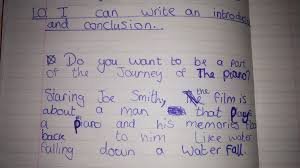 LO I can write an introduc
and conclusion...
Do you want to be a part
of the Journey of The piano?
Staring Joe Smith, the film is
about a man that Play
a piano and his memories
back to him Like water
falling down a Water fall.